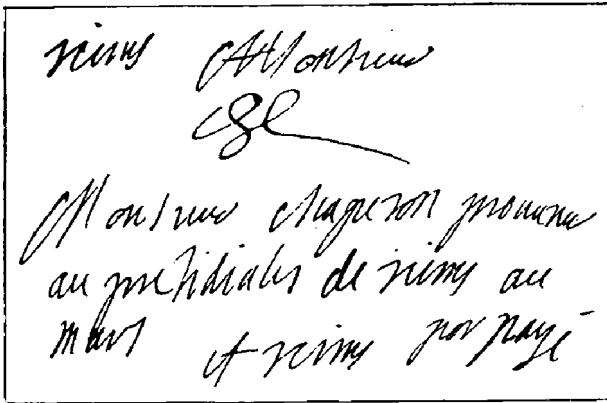 reims A Monsieur
Monsieur chaperon procureur
au presidiales de reims au
mars A reims por payé